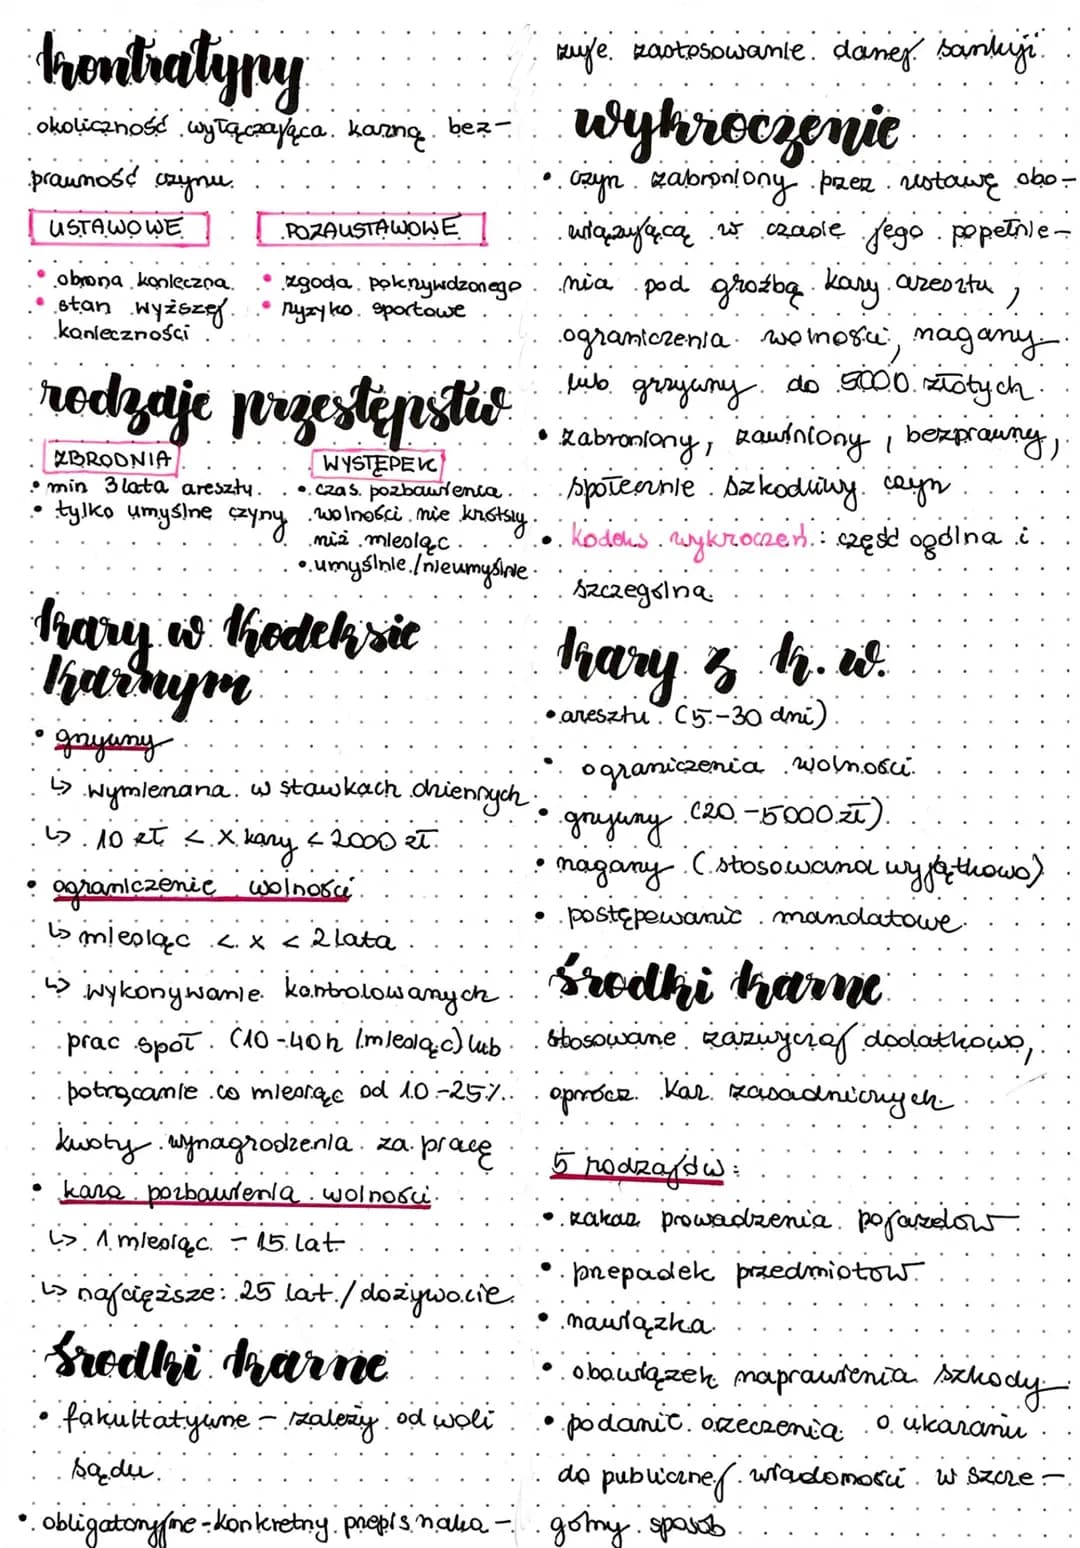 kontratypy
okoliczność wyłączająca karną bez-
prawność czynu.
USTAWOWE
• obrona konieczna
• stan wyższej
konieczności
POZAUSTAWOWE
• zgoda pokrzywdzonego
• ryzyko sportowe
rodzaje przestępstw
ZBRODNIA
• min 3 lata aresztu
• tylko umyślne czyny
WYSTĘPEK
• czas pozbawienia
wolności nie krótszy
niż miesiąc
• umyślnie/nieumyślnie
kary w kodeksie
karnym
• grzywny
↳ wymierzana w stawkach dziennych
↳ 10 zł < x kary < 2000 zł
• ograniczenie wolności
↳ miesiąc < x < 2 lata
↳ wykonywanie kontrolowanych
prac społ. (10-40h/miesiąc) lub
potrącanie co miesiąc od 10-25%
kwoty wynagrodzenia za pracę
• kara pozbawienia wolności
↳ 1 miesiąc - 15 lat
↳ najcięższe: 25 lat / dożywocie
środki karne
• fakultatywne - zależy od woli
sądu
• obligatoryjne - konkretny przepis naka-
zuje zastosowanie danej sankcji
wykroczenie
• czyn zabroniony przez ustawę obo-
wiązującą w czasie jego popełnie-
nia pod groźbą kary aresztu,
ograniczenia wolności, nagany
lub grzywny do 5000 złotych
• zabroniony, zawiniony, bezprawny,
społecznie szkodliwy czyn
• kodeks wykroczeń: część ogólna i
szczególna
kary z k.w.
• aresztu (5-30 dni)
• ograniczenia wolności
• grzywny (20-5000 zł)
• nagany (stosowana wyjątkowo)
• postępowanie mandatowe
środki karne
stosowane zazwyczaj dodatkowo,
oprócz kar zasadniczych
5 rodzajów:
• zakaz prowadzenia pojazdów
• przepadek przedmiotów
• nawiązka
• obowiązek naprawienia szkody
• podanie orzeczenia o ukaraniu
do publicznej wiadomości w szcze-
gólny sposób